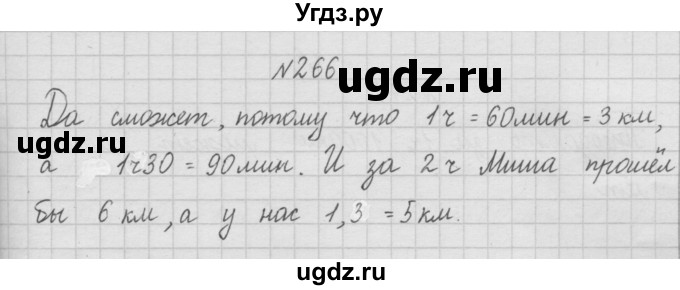 Угдз.ру
№266
ugdz.ru
Да сможет, потому что 1ч = 60мин = 3 км,
а 1ч30 = 90мин. И за 2ч Миша прошёл
бы 6 км, а у нас 1,3 = 5км.
ugdz.ru
ugdz.ru